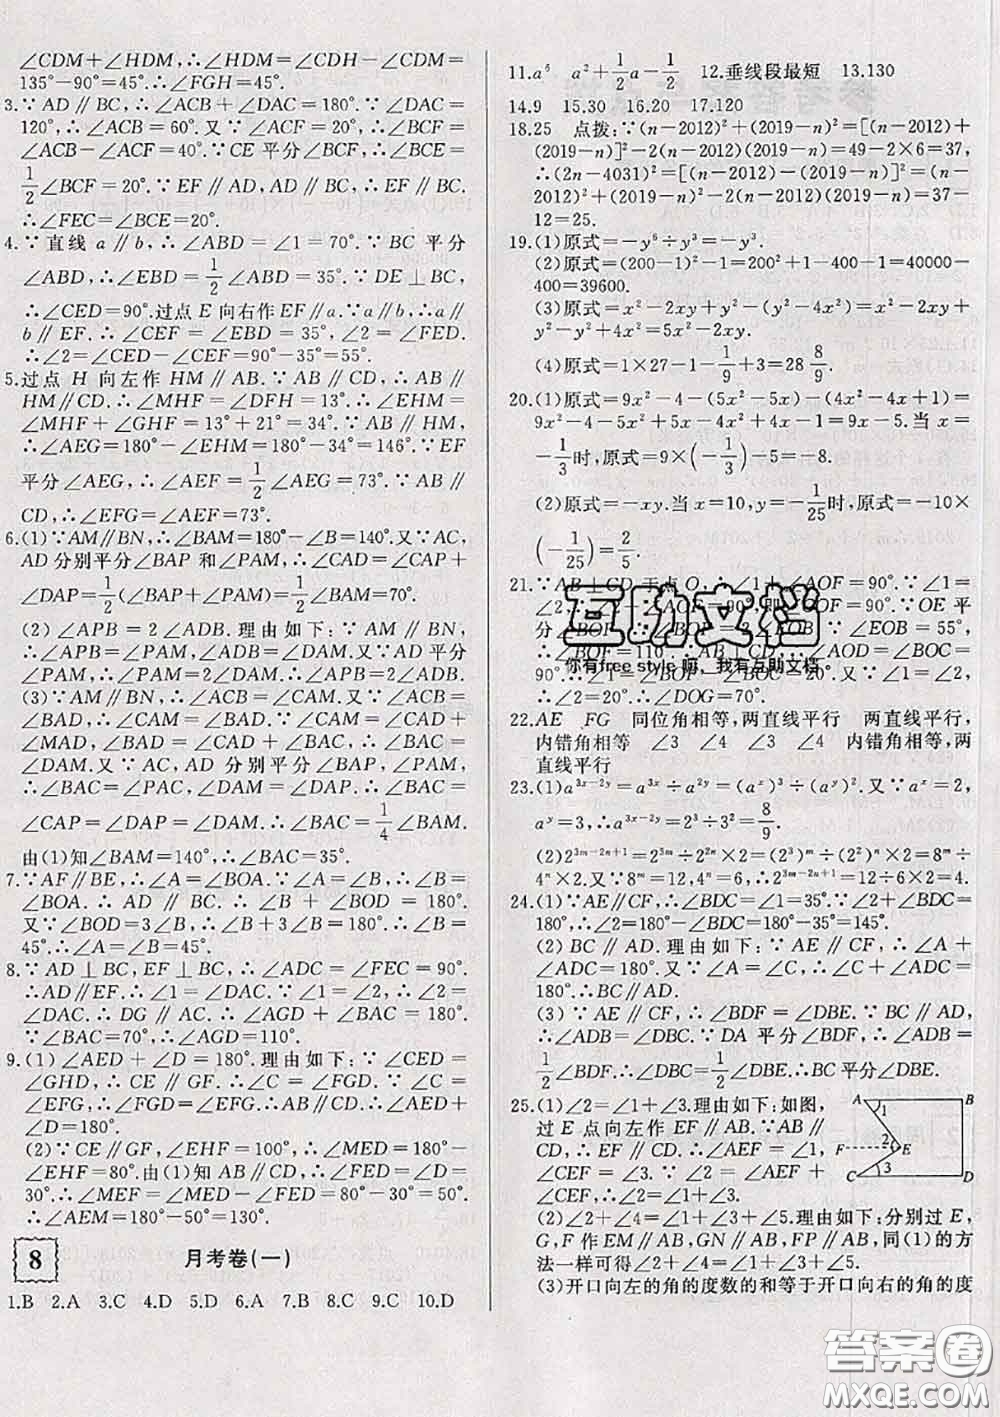 ∠CDM+∠HDM,∴∠HDM=∠CDH-∠CDM=
135°-90°=45°.∴∠FGH=45°.
3.∵AD∥BC,∴∠ACB+∠DAC=180°.∵∠DAC=
120°,∴∠ACB=60°.又∵∠ACF=20°,∴∠BCF=
∠ACB-∠ACF=40°.∵CE平分∠BCF,∴∠BCE=
1/2∠BCF=20°.∵EF∥AD,AD∥BC,∴EF∥BC.
∴∠FEC=∠BCE=20°.
4.∵直线a∥b,∴∠ABD=∠1=70°.∵BC平分
∠ABD,∴∠EBD=1/2∠ABD=35°.∵DE⊥BC,
∴∠CED=90°.过点E向右作EF∥a.∵a∥b,∴a∥
b∥EF.∴∠CEF=∠EBD=35°,∠2=∠FED.
∴∠2=∠CED-∠CEF=90°-35°=55°.
5.过点H向左作HM∥AB.∵AB∥CD,∴AB∥
HM∥CD.∴∠MHF=∠DFH=13°.∴∠EHM=
∠MHF+∠GHF=13°+21°=34°.∵AB∥HM,
∴∠AEG=180°-∠EHM=180°-34°=146°.∵EF
平分∠AEG,∴∠AEF=1/2∠AEG=73°.∵AB∥
CD,∴∠EFG=∠AEF=73°.
6.(1)∵AM∥BN,∴∠BAM=180°-∠B=140°.又∵AC,
AD分别平分∠BAP和∠PAM,∴∠CAD=∠CAP+
∠DAP=1/2(∠BAP+∠PAM)=1/2∠BAM=70°.
(2)∠APB=2∠ADB.理由如下:∵AM∥BN,
∴∠APB=∠PAM,∠ADB=∠DAM.∵AD平分
∠PAM,∴∠PAM=2∠DAM.∴∠APB=2∠ADB.
(3)∵AM∥BN,∴∠ACB=∠CAM.又∵∠ACB=
∠BAD,∴∠CAM=∠BAD.∵∠CAM=∠CAD+
∠MAD,∠BAD=∠CAD+∠BAC,∴∠BAC=
∠DAM.又∵AC,AD分别平分∠BAP,∠PAM,
∴∠CAP=∠BAC,∠DAP=∠DAM.∴∠BAC=
∠CAP=∠DAP=∠DAM.∴∠BAC=1/4∠BAM.
由(1)知∠BAM=140°,∴∠BAC=35°.
7.∵AF∥BE,∴∠A=∠BOA.∵∠A=∠B,∴∠B=
∠BOA.∴AD∥BC.∴∠B+∠BOD=180°.
又∵∠BOD=3∠B,∴∠B+3∠B=180°.∴∠B=
45°.∴∠A=∠B=45°.
8.∵AD⊥BC,EF⊥BC,∴∠ADC=∠FEC=90°.
∴AD∥EF.∴∠1=∠DAC.∵∠1=∠2,∴∠2=
∠DAC.∴DG∥AC.∴∠AGD+∠BAC=180°.
∵∠BAC=70°,∴∠AGD=110°.
9.(1)∠AED+∠D=180°.理由如下:∵∠CED=
∠GHD,∴CE∥GF.∴∠C=∠FGD.∵∠C=
∠EFG,∴∠FGD=∠EFG.∴AB∥CD.∴∠AED+
∠D=180°.
(2)∵CE∥GF,∠EHF=100°,∴∠MED=180°-
∠EHF=80°.由(1)知AB∥CD,∴∠FED=∠D=
30°.∴∠MEF=∠MED-∠FED=80°-30°=50°.
∴∠AEM=180°-50°=130°.
8 月考卷(一)
1.B 2.A 3.C 4.D 5.D 6.A 7.B 8.C 9.C 10.D
11.a⁵ a²+1/2a-1/2 12.垂线段最短 13.130
14.9 15.30 16.20 17.120
18.25 点拨:∵(n-2012)²+(2019-n)²=[(n-2012)+
(2019-n)]²-2(n-2012)(2019-n)=49-2×6=37,
∴(2n-4031)²=[(n-2012)-(2019-n)]²=(n-
2012)²+(2019-n)²-2(n-2012)(2019-n)=37-
12=25.
19.(1)原式=-y⁶÷y³=-y³.
(2)原式=(200-1)²-1=200²-400+1-1=40000-
400=39600.
(3)原式=x²-2xy+y²-(y²-4x²)=x²-2xy+
y²-y²+4x²=5x²-2xy.
(4)原式=1×27-1-1/9+3=28 8/9.
20.(1)原式=9x²-4-(5x²-5x)-(4x²-4x+1)=
9x²-4-5x²+5x-4x²+4x-1=9x-5.当x=
-1/3时,原式=9×(-1/3)-5=-8.
(2)原式=-xy.当x=10,y=-1/25时,原式=-10×
(-1/25)=2/5.
21.∵AB⊥CD于点O,∴∠1+∠AOF=90°.∵∠1=
∠2 90°,即 90°.∵OE平
分∠BOF ∠EOB ∵∠EOB=55°,
∴∠BOF=110° ∴∠AOD=∠BOC=
90°.∴∠1=∠BOF-∠BOC=20°.又∵∠1=∠2,
∴∠2=20°.∴∠DOG=70°.
22.AE FG 同位角相等,两直线平行 两直线平行,
内错角相等 ∠3 ∠4 ∠3 ∠4 内错角相等,两
直线平行
23.(1)a³ˣ⁻²ʸ=a³ˣ÷a²ʸ=(aˣ)³÷(aʸ)².又∵aˣ=2,
aʸ=3,∴a³ˣ⁻²ʸ=2³÷3²=8/9.
(2)2³ᵐ⁻²ⁿ⁺¹=2³ᵐ÷2²ⁿ×2=(2³)ᵐ÷(2²)ⁿ×2=8ᵐ÷
4ⁿ×2.又∵8ᵐ=12,4ⁿ=6,∴2³ᵐ⁻²ⁿ⁺¹=12÷6×2=4.
24.(1)∵AE∥CF,∴∠BDC=∠1=35°.∵∠2+∠BDC=
180°,∴∠2=180°-∠BDC=180°-35°=145°.
(2)BC∥AD.理由如下:∵AE∥CF,∴∠A+
∠ADC=180°.又∵∠A=∠C,∴∠C+∠ADC=
180°.∴BC∥AD.
(3)∵AE∥CF,∴∠BDF=∠DBE.∵BC∥AD,
∴∠ADB=∠DBC.∵DA平分∠BDF,∴∠ADB=
1/2∠BDF.∴∠DBC=1/2∠DBE.∴BC平分∠DBE.
25.(1)∠2=∠1+∠3.理由如下:如图,
过E点向左作EF∥AB.∵AB∥
CD,∴EF∥CD.∴∠AEF=∠1,
∠CEF=∠3.∵∠2=∠AEF+
∠CEF,∴∠2=∠1+∠3.
A B 1 F 2 E 3 C D
(2)∠2+∠4=∠1+∠3+∠5.理由如下:分别过E,
G,F作EM∥AB,GN∥AB,FP∥AB,同(1)的方
法一样可得∠2+∠4=∠1+∠3+∠5.
(3)开口向左的角的度数的和等于开口向右的角的度
互助文档
你有free style 嘛,我有互助文档。
答案圈
MXQE.COM